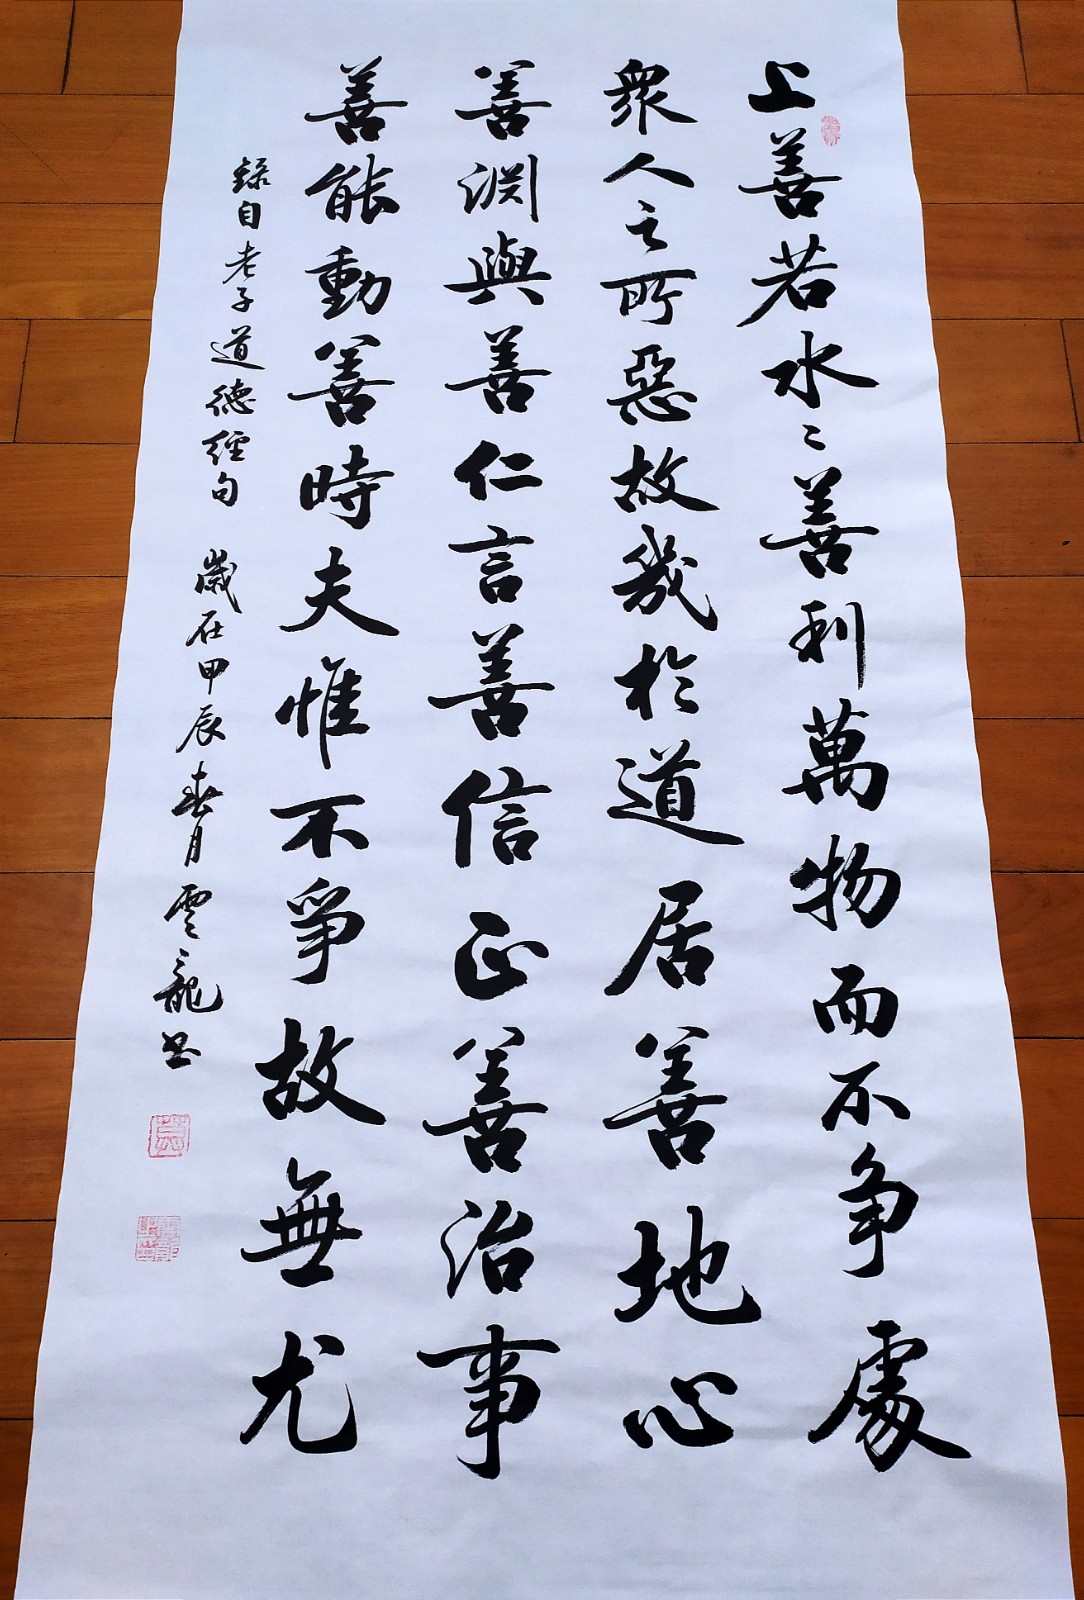 上善若水〻善利萬物而不争處
衆人之所惡故幾於道居善地心
善淵與善仁言善信正善治事
善能動善時夫惟不爭故無尤
録自老子道德經句 歲在甲辰春月雲龍書